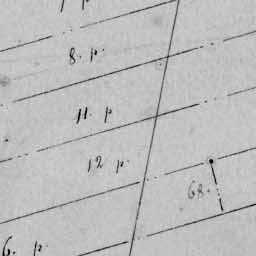 8. p.
11. p
12 p.
68.
6. p.